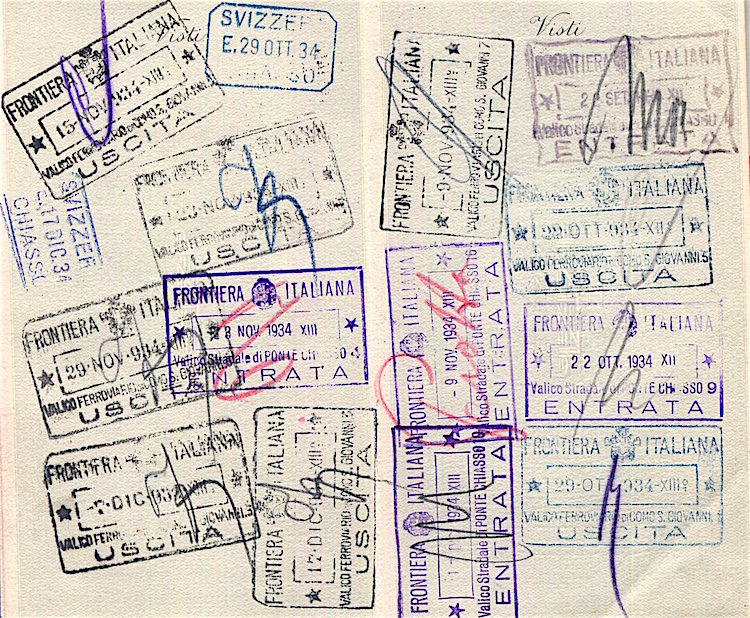 Visti
FRONTIERA ITALIANA
NOV 934-XIII
VALICO FERROVIARIO DI COMO S. GIOVANNI
USCITA
SVIZZER
E. 29 OTT. 34
FRONTIERA ITALIANA
NOV 934
VALICO FERROVIARIO DI COMO S.
USCITA
SVIZZER
E. 17 DIC 34
CHIASS
FRONTIERA ITALIANA
NOV 1934 XIII
Valico Stradale di PONTE CHIASSO 4
ENTRATA
FRONTIERA ITALIANA
29 NOV 934
VALICO FERROVIARIO DI COMO S. GIOVANNI
USCITA
FRONTIERA ITALIANA
DIC 934 XIII
VALICO FERROVIARIO DI COMO S. GIOVANNI 5
USCITA
FRONTIERA ITALIANA
17 DIC XIII
VALICO FERROVIARIO DI COMO S. GIOVANNI
USCITA
Visti
FRONTIERA ITALIANA
-9 NOV 934-XIII
VALICO FERROVIARIO DI COMO S. GIOVANNI 7
USCITA
FRONTIERA ITALIANA
SET XII
Valico Stradale di PONTE CHIASSO
ENTRATA
FRONTIERA ITALIANA
29 OTT 934-XII
VALICO FERROVIARIO DI COMO S. GIOVANNI 5
USCITA
FRONTIERA ITALIANA
-9 NOV. 1934 XIII
Valico Stradale di PONTE CHIASSO 16
ENTRATA
FRONTIERA ITALIANA
22 OTT. 1934 XII
Valico Stradale di PONTE CHIASSO 9
ENTRATA
FRONTIERA ITALIANA
1934 XIII
Valico Stradale di PONTE CHIASSO
ENTRATA
FRONTIERA ITALIANA
29 OTT 934-XIII
VALICO FERROVIARIO DI COMO S. GIOVANNI
USCITA